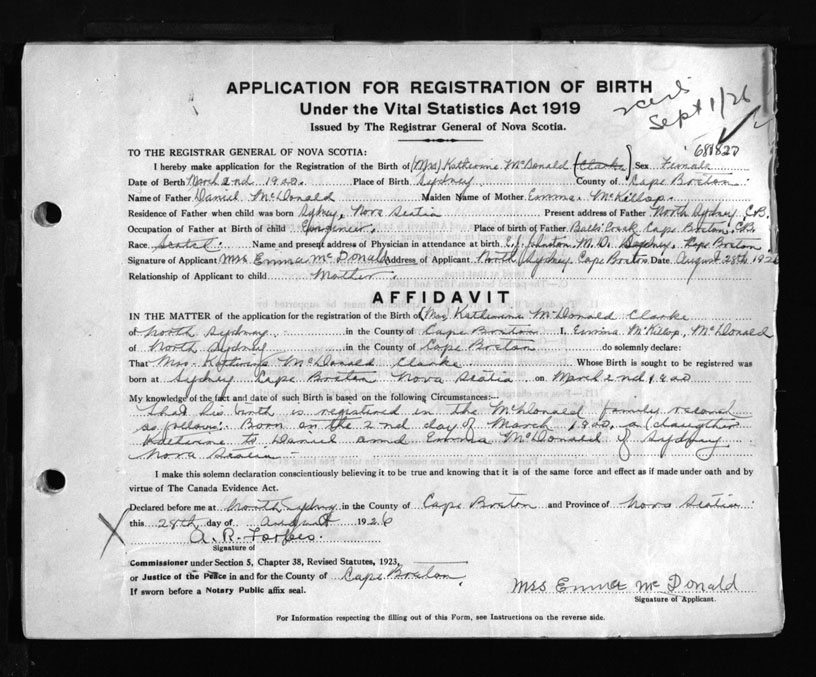 APPLICATION FOR REGISTRATION OF BIRTH
Under the Vital Statistics Act 1919
Issued by The Registrar General of Nova Scotia.
Sept 1/26
TO THE REGISTRAR GENERAL OF NOVA SCOTIA:
I hereby make application for the Registration of the Birth of (Mrs) Katherine McDonald (Clarke) Sex Female
Date of Birth March 2nd 1900. Place of Birth Sydney County of Cape Breton
Name of Father Daniel McDonald Maiden Name of Mother Emma McKillop.
Residence of Father when child was born Sydney, Nova Scotia Present address of Father North Sydney C.B.
Occupation of Father at Birth of child Engineer Place of birth of Father Balls Creek Cape Breton, C.B.
Race Scotch. Name and present address of Physician in attendance at birth E.J. Johnston M.D. Sydney. Cape Breton
Signature of Applicant Mrs Emma McDonald Address of Applicant North Sydney Cape Breton Date August 28th 1926
Relationship of Applicant to child Mother.
AFFIDAVIT
IN THE MATTER of the application for the registration of the Birth of (Mrs) Katherine McDonald Clarke
of North Sydney. in the County of Cape Breton I, Emma McKillop, McDonald
of North Sydney in the County of Cape Breton do solemnly declare:
That Mrs. Katherine McDonald Clarke Whose Birth is sought to be registered was
born at Sydney Cape Breton Nova Scotia on March 2nd 1900
My knowledge of the fact and date of such Birth is based on the following Circumstances:—
That his birth is registered in the McDonald family record
as follows: Born on the 2nd day of March 1900, a daughter
Katherine to Daniel and Emma McDonald of Sydney
Nova Scotia
I make this solemn declaration conscientiously believing it to be true and knowing that it is of the same force and effect as if made under oath and by
virtue of The Canada Evidence Act.
Declared before me at North Sydney in the County of Cape Breton and Province of Nova Scotia
this 28th day of August 1926
A. R. Forbes.
Signature of
Commissioner under Section 5, Chapter 38, Revised Statutes, 1923,
or Justice of the Peace in and for the County of Cape Breton.
If sworn before a Notary Public affix seal.
Mrs Emma McDonald
Signature of Applicant.
For Information respecting the filling out of this Form, see Instructions on the reverse side.